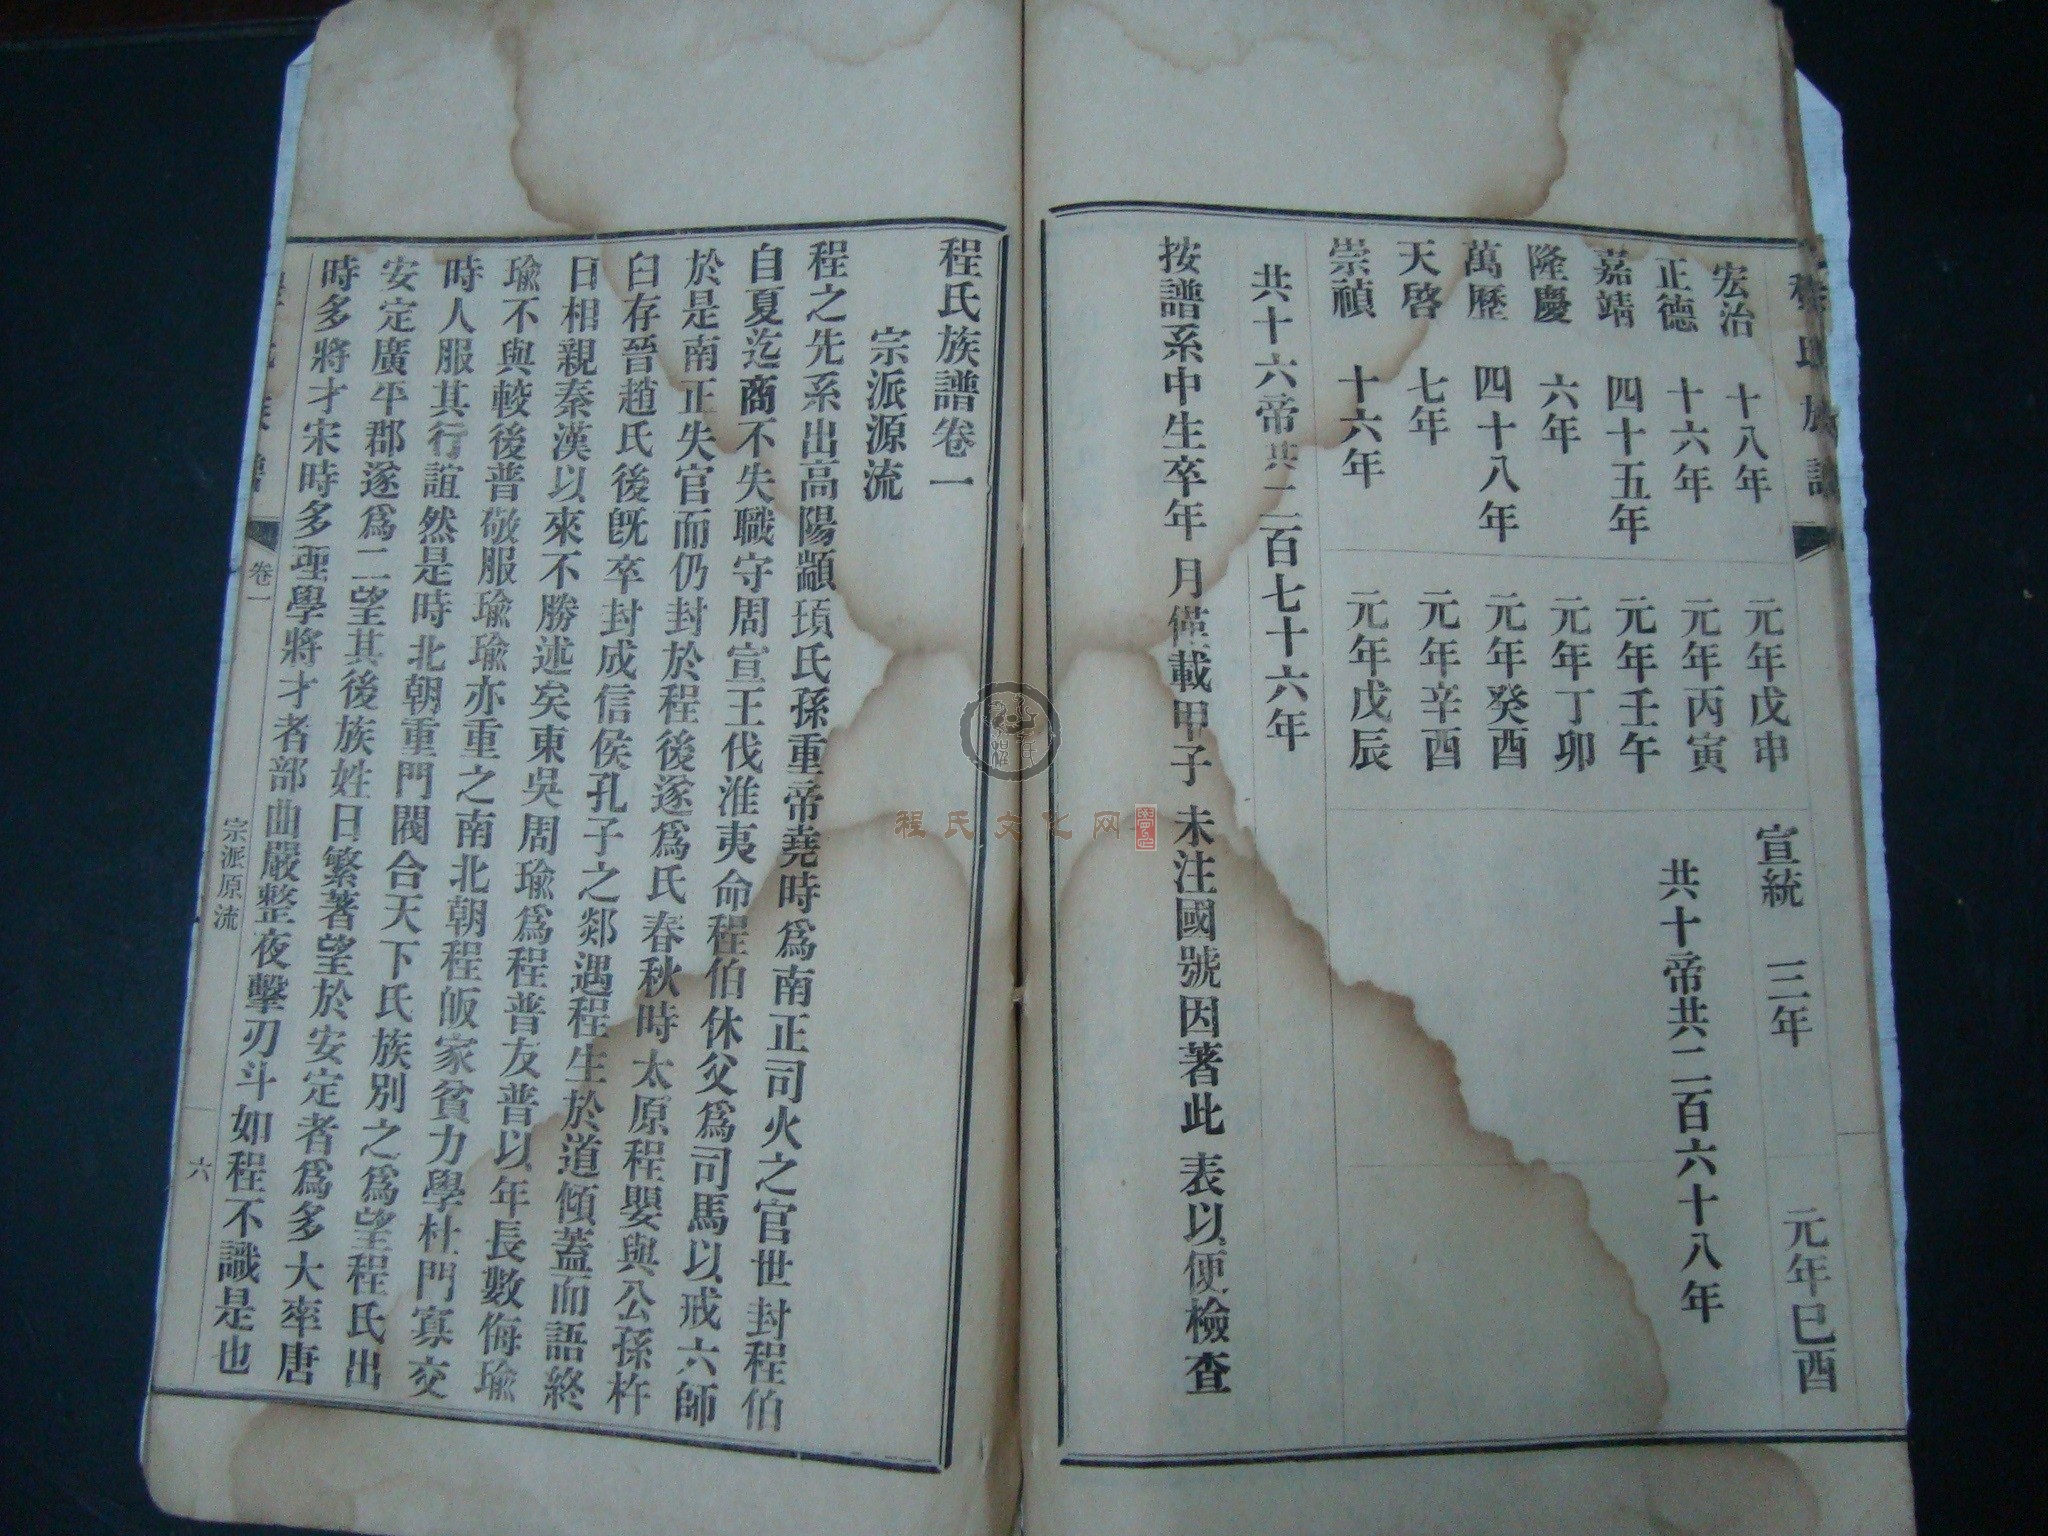 程氏族譜
宏治 十八年 元年戊申 宣統 三年 元年巳酉
正德 十六年 元年丙寅 共十帝共二百六十八年
嘉靖 四十五年 元年壬午
隆慶 六年 元年丁卯
萬歷 四十八年 元年癸酉
天啓 七年 元年辛酉
崇禎 十六年 元年戊辰
共十六帝共二百七十六年
按譜系中生卒年月僅載甲子未注國號因著此表以便檢查
程氏族譜卷一
宗派源流
程之先系出高陽顓頊氏孫重帝堯時爲南正司火之官世封程伯
自夏迄商不失職守周宣王伐淮夷命程伯休父爲司馬以戒六師
於是南正失官而仍封於程後遂爲氏春秋時太原程嬰與公孫杵
臼存晉趙氏後旣卒封成信侯孔子之郯遇程生於道傾蓋而語終
日相親秦漢以來不勝述矣東吳周瑜爲程普友普以年長數侮瑜
瑜不與較後普敬服瑜瑜亦重之南北朝程皈家貧力學杜門寡交
時人服其行誼然是時北朝重門閥合天下氏族別之爲望程氏出
安定廣平郡遂爲二望其後族姓日繁著望於安定者爲多大率唐
時多將才宋時多理學將才者部曲嚴整夜擊刃斗如程不識是也
卷一
宗派原流
六
程氏文化网